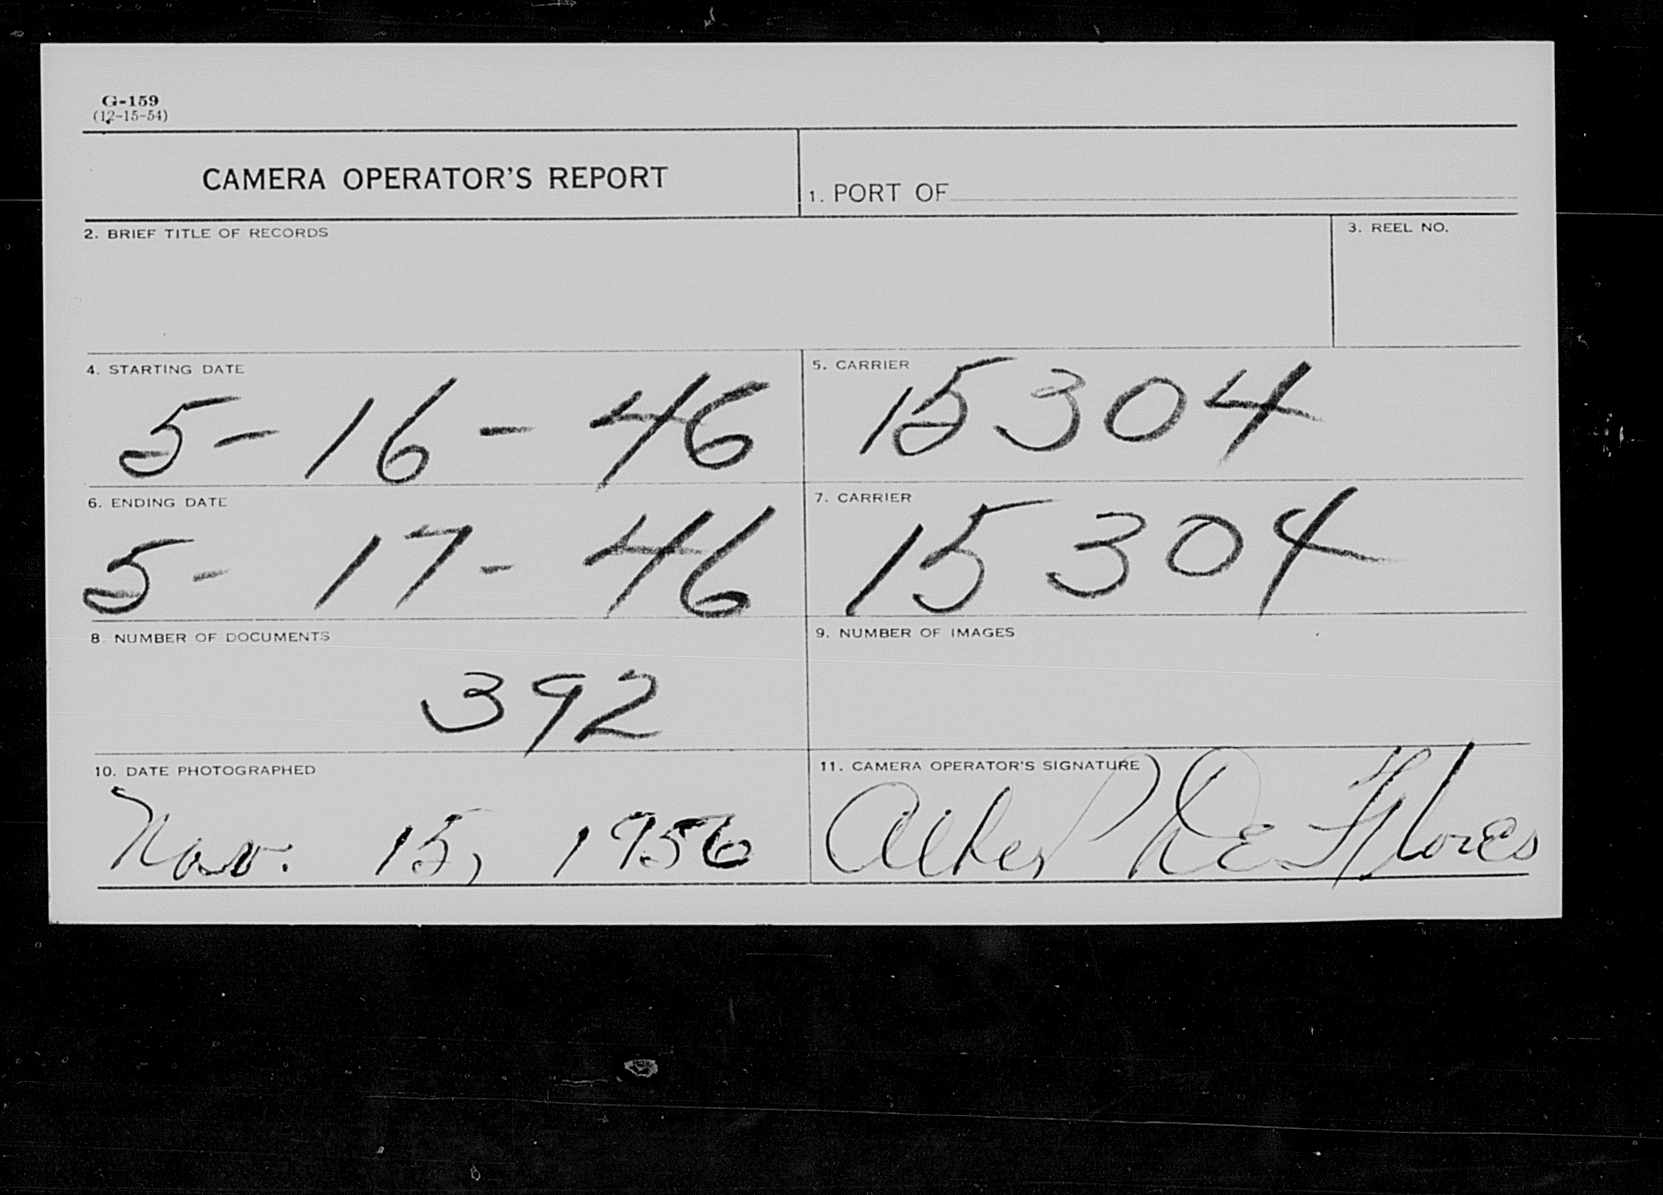 G-159
(12-15-54)
CAMERA OPERATOR'S REPORT
1. PORT OF
2. BRIEF TITLE OF RECORDS
3. REEL NO.
4. STARTING DATE
5-16-46
5. CARRIER
15304
6. ENDING DATE
5-17-46
7. CARRIER
15304
8. NUMBER OF DOCUMENTS
392
9. NUMBER OF IMAGES
10. DATE PHOTOGRAPHED
Nov. 15, 1956
11. CAMERA OPERATOR'S SIGNATURE
De Flores